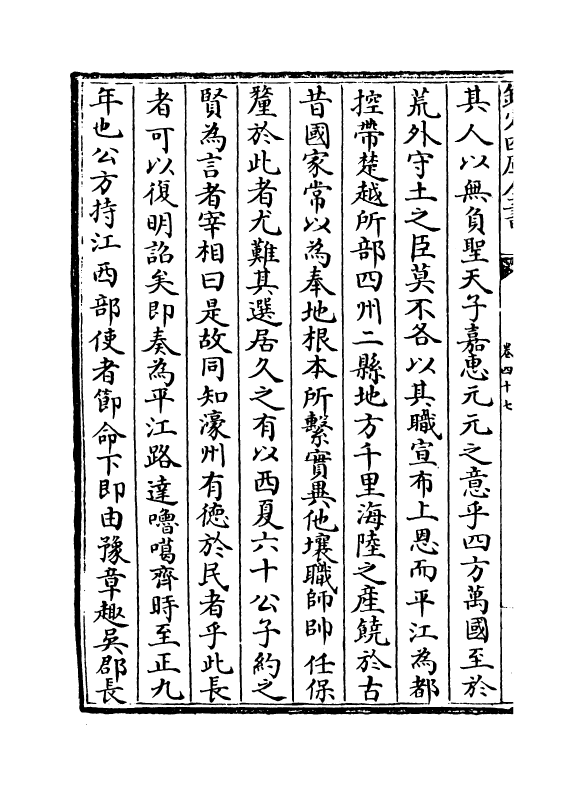 欽定四庫全書
卷四十七
其人以無負聖天子嘉惠元元之意乎四方萬國至於
荒外守土之臣莫不各以其職宣布上恩而平江為都
控帶楚越所部四州二縣地方千里海陸之産饒於古
昔國家常以為奉地根本所繫實異他壤職師帥任保
釐於此者尤難其選居久之有以西夏六十公子約之
賢為言者宰相曰是故同知濠州有徳於民者乎此長
者可以復明詔矣即奏為平江路達嚕噶齊時至正九
年也公方持江西部使者節命下即由豫章趣吳郡長